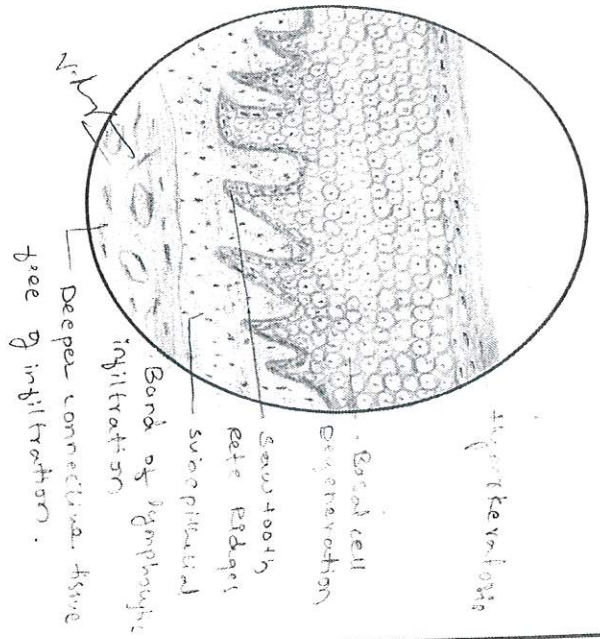 Hyperkeratosis
Basal cell
Degeneration
Saw tooth
Rete Ridges
subepithelial
Band of lymphocytic
infiltration
Deeper connective tissue
free of infiltration.